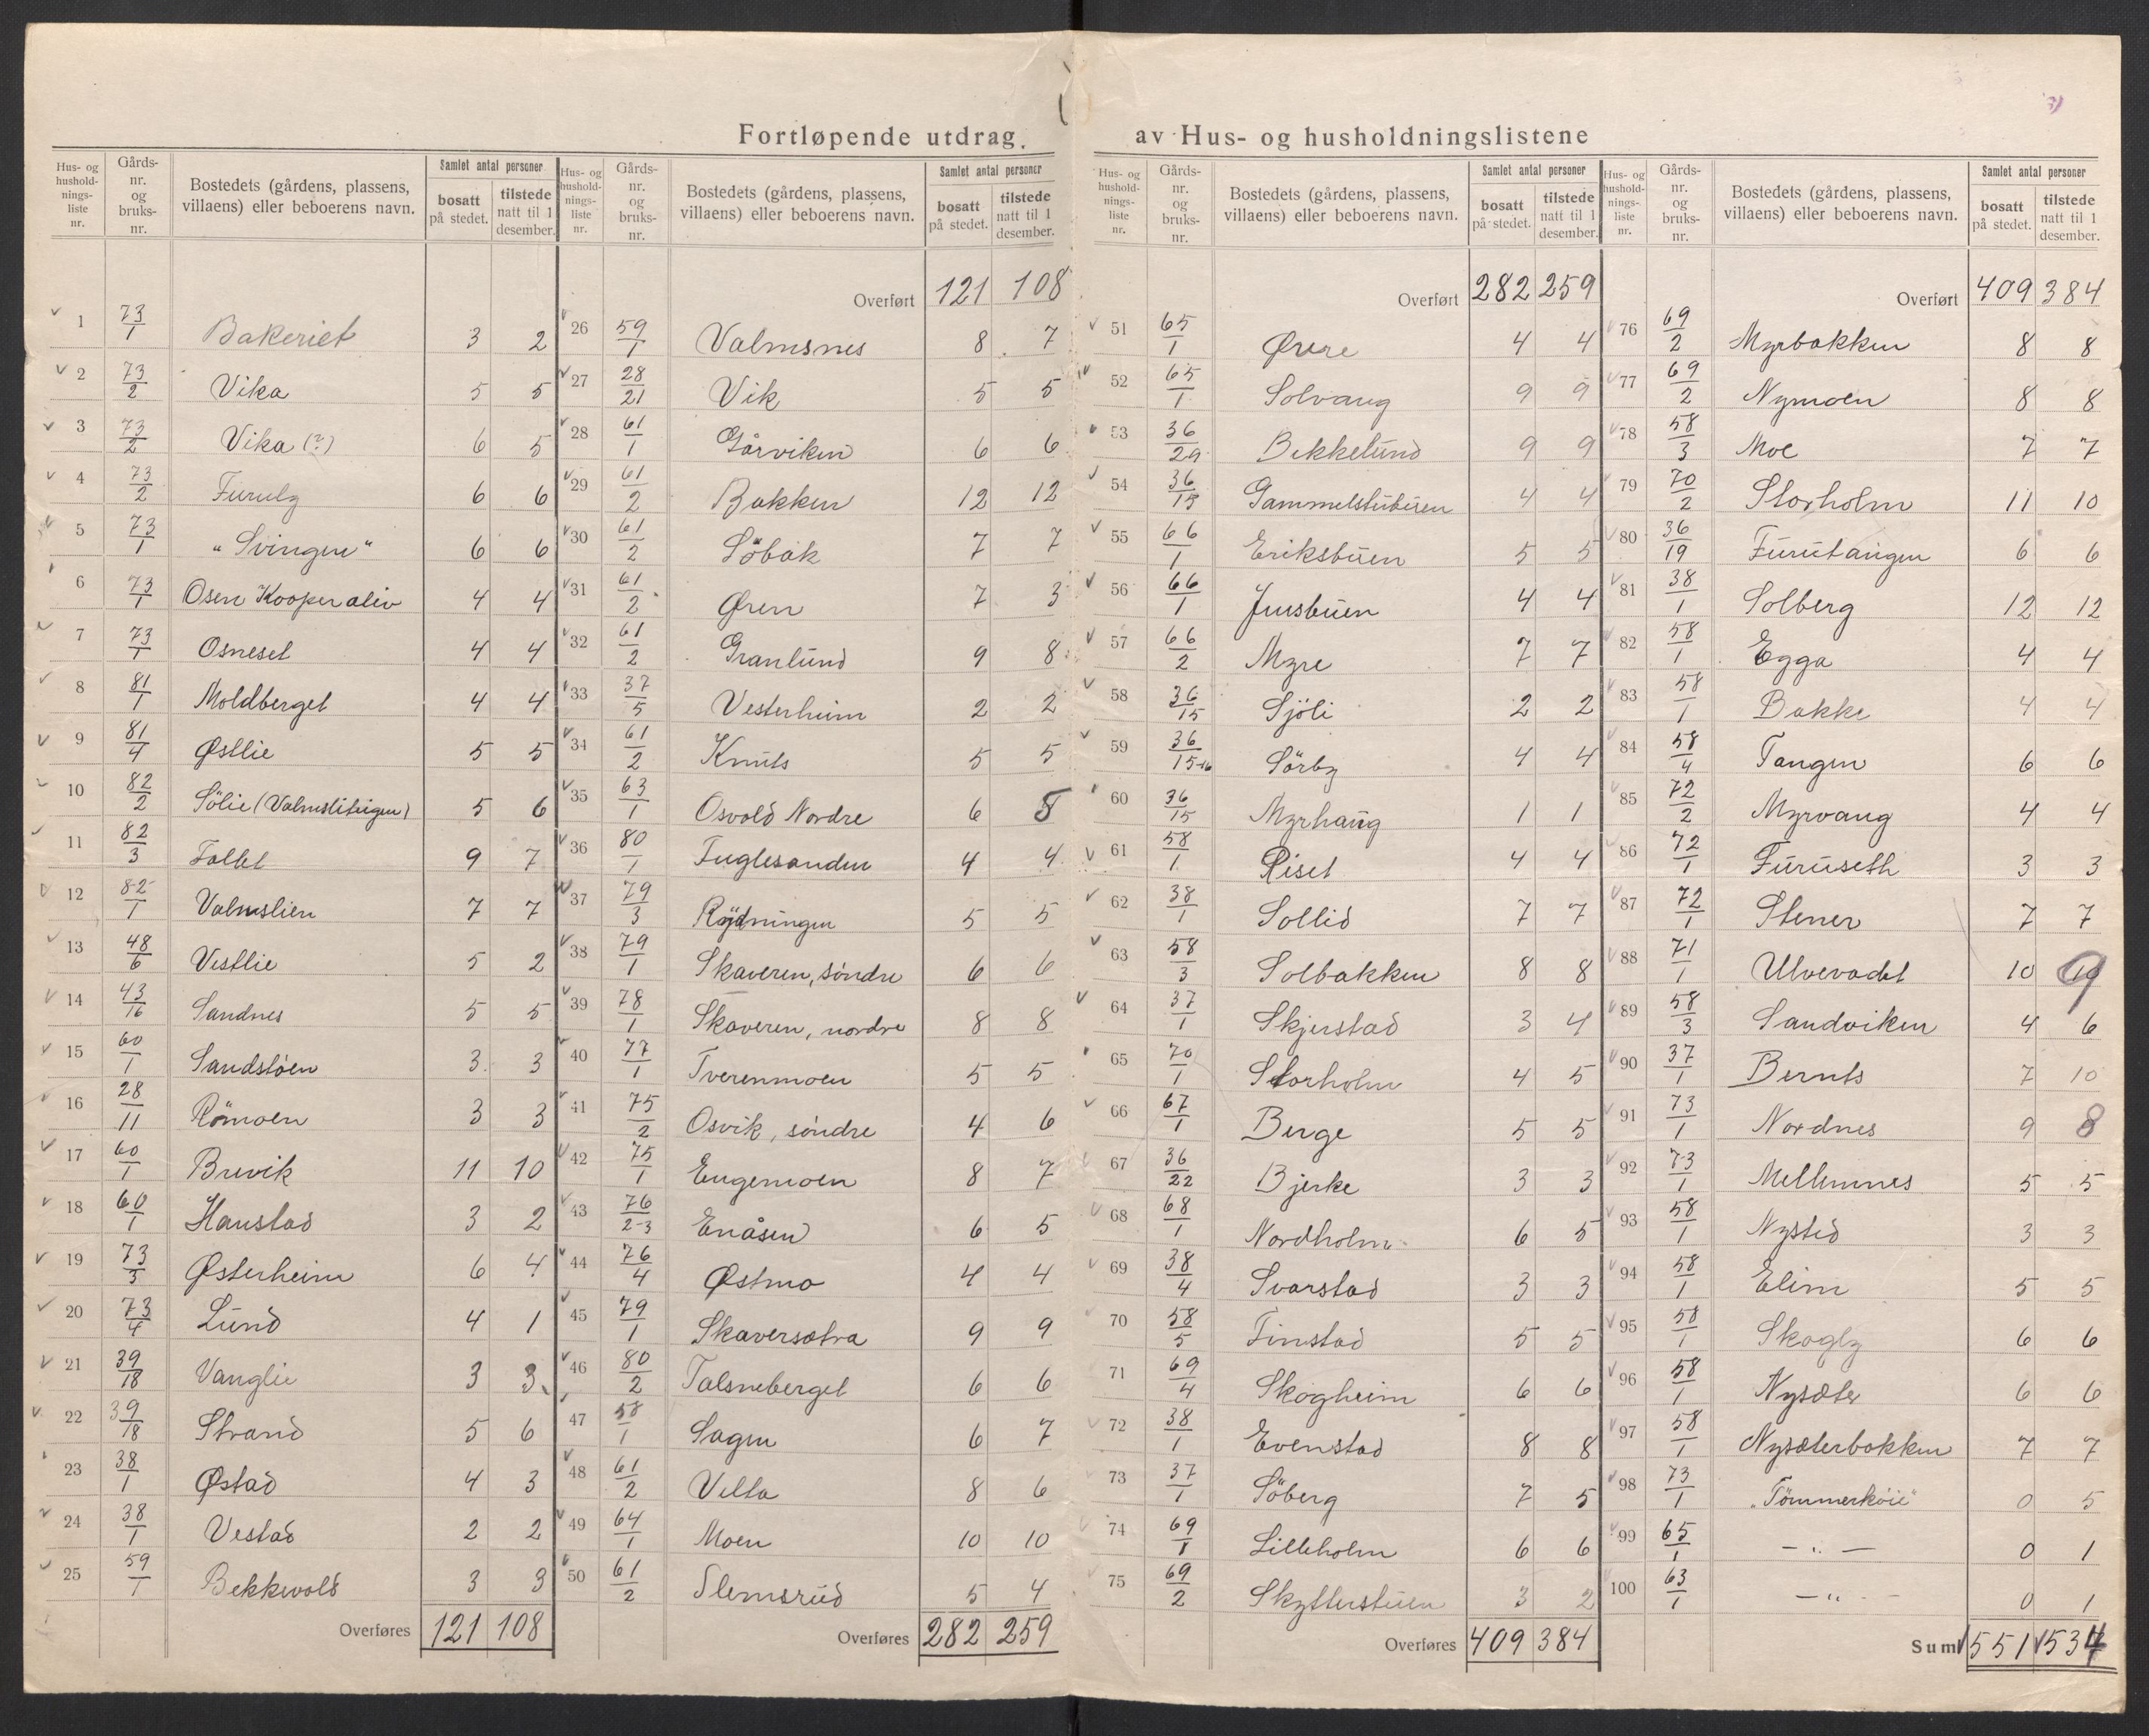 Fortløpende utdrag av Hus- og husholdningslistene
Hus- og husholdnings-liste nr. | Gårds-nr. og bruks-nr. | Bostedets (gårdens, plassens, villaens) eller beboerens navn. | Samlet antal personer | bosatt på stedet. | tilstede natt til 1 desember.
1 73/1 Bakeriet 3 2
2 73/2 Vika 5 5
3 73/2 Vika (?) 6 5
4 73/2 Furuly 6 6
5 73/1 "Svingen" 6 6
6 73/1 Osen Kooperativ 4 4
7 73/1 Osneset 4 4
8 81/1 Moldberget 4 4
9 81/4 Østlie 5 5
10 82/2 Sölie (Valmsliteigen) 5 6
11 82/3 Fallet 9 7
12 82/1 Valmslien 7 7
13 48/6 Vestlie 5 2
14 43/16 Sandnes 5 5
15 60/1 Sandstöen 3 3
16 28/11 Römoen 3 3
17 60/1 Brevik 11 10
18 60/1 Haustad 3 2
19 73/3 Østerheim 6 4
20 73/4 Lund 4 1
21 39/18 Vanglie 3 3
22 39/18 Strand 5 6
23 38/1 Østad 4 3
24 38/1 Vestad 2 2
25 59/1 Bekkevold 3 3
Overføres 121 108
Hus- og husholdnings-liste nr. | Gårds-nr. og bruks-nr. | Bostedets (gårdens, plassens, villaens) eller beboerens navn. | Samlet antal personer | bosatt på stedet. | tilstede natt til 1 desember.
Overført 121 108
26 59/1 Valmsnes 8 7
27 28/21 Vik 5 5
28 61/1 Gårviken 6 6
29 61/2 Bakken 12 12
30 61/2 Söbak 7 7
31 61/2 Øren 7 3
32 61/2 Granlund 9 8
33 37/5 Vesterheim 2 2
34 61/2 Knuts 5 5
35 63/1 Osvold Nordre 6 8
36 80/1 Fuglesanden 4 4
37 79/3 Rydningen 5 5
38 79/1 Skaveren, söndre 6 6
39 78/1 Skaveren, nordre 8 8
40 77/1 Tverenmoen 5 5
41 75/2 Osvik, söndre 4 6
42 75/1 Eugemoen 8 7
43 76/2-3 Enåsen 6 5
44 76/4 Østmo 4 4
45 79/1 Skaversætra 9 9
46 80/2 Talsneberget 6 6
47 58/1 Sagen 6 7
48 61/2 Velta 8 6
49 64/1 Moen 10 10
50 61/2 Slemsrud 5 4
Overføres 282 259
Hus- og husholdnings-liste nr. | Gårds-nr. og bruks-nr. | Bostedets (gårdens, plassens, villaens) eller beboerens navn. | Samlet antal personer | bosatt på stedet. | tilstede natt til 1 desember.
Overført 282 259
51 65/1 Øvre 4 4
52 65/1 Solvang 9 9
53 36/29 Bekkelund 9 9
54 36/15 Gammelstubuen 4 4
55 66/1 Eriksbuen 5 5
56 66/1 Jensbuen 4 4
57 66/2 Myre 7 7
58 36/15 Sjöli 2 2
59 36/15-16 Sörby 4 4
60 36/15 Myrhaug 1 1
61 58/1 Riset 4 4
62 38/1 Sollid 7 7
63 58/3 Solbakken 8 8
64 37/1 Skjerstad 3 4
65 70/1 Storholm 4 5
66 67/1 Berge 5 5
67 36/22 Bjerke 3 3
68 68/1 Nordholm 6 5
69 38/4 Svarstad 3 3
70 58/5 Finstad 5 5
71 69/4 Skogheim 6 6
72 38/1 Evenstad 8 8
73 37/1 Söberg 7 5
74 69/1 Lilleholm 6 6
75 69/2 Skytterstuen 3 2
Overføres 409 384
Hus- og husholdnings-liste nr. | Gårds-nr. og bruks-nr. | Bostedets (gårdens, plassens, villaens) eller beboerens navn. | Samlet antal personer | bosatt på stedet. | tilstede natt til 1 desember.
Overført 409 384
76 69/2 Myrbakken 8 8
77 69/2 Nymoen 8 8
78 58/3 Moe 7 7
79 70/2 Storholm 11 10
80 36/19 Furutangen 6 6
81 38/1 Solberg 12 12
82 58/1 Egga 4 4
83 58/1 Bakke 4 4
84 58/4 Tangen 6 6
85 72/2 Myrvang 4 4
86 72/1 Furuseth 3 3
87 72/1 Stener 7 7
88 71/1 Ulvevadet 10 9
89 58/3 Sandviken 4 6
90 37/1 Bernts 7 10
91 73/1 Nordnes 9 8
92 73/1 Mellemnes 5 5
93 58/1 Nysted 3 3
94 58/1 Elim 5 5
95 58/1 Skogly 6 6
96 58/1 Nysæter 6 6
97 58/1 Nysæterbakken 7 7
98 73/1 "Tömmerköie" 0 5
99 65/1 — " — 0 1
100 63/1 — " — 0 1
Sum 551 534